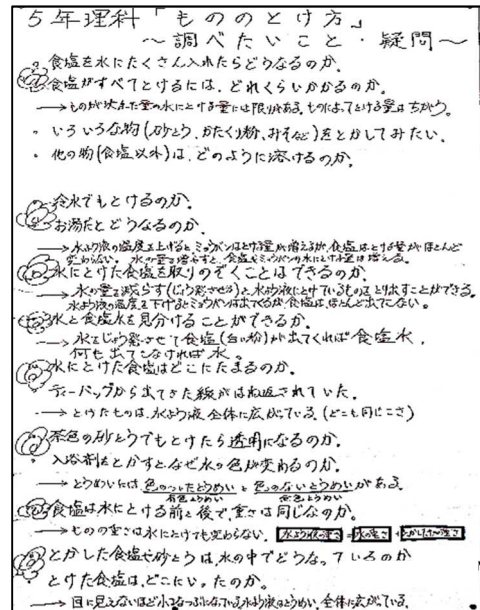 5年理科「もののとけ方」
～調べたいこと・疑問～
食塩を水にたくさん入れたらどうなるのか。
食塩がすべてとけるには、どれくらいかかるのか。
→ものが決まった量の水にとける量には限りがある。ものによってとける量はちがう。
・いろいろな物(砂とう、かたくり粉、みそなど)をとかしてみたい。
・他の物(食塩以外)は、どのように溶けるのか。
冷水でもとけるのか。
お湯だとどうなるのか。
→水よう液の温度を上げると、ミョウバンはとける量が増えるが、食塩はとける量がほとんど
変わらない。水の量を増やすと、食塩やミョウバンの水にとける量は増える。
水にとけた食塩を取りのぞくことはできるのか。
→水の量を減らす(じょう発させる)と水よう液にとけているものをとり出すことができる。
水よう液の温度を下げるとミョウバンは出てくるが、食塩は、ほとんど出てこない。
水と食塩水を見分けることができるか。
→水をじょう発させて食塩(白い粉)が出てくれば食塩水、
何も出てこなければ水。
水にとけた食塩はどこにたまるのか。
ティーバッグから出てきた線が
→とけたものは、水よう液全体に広がっている。(どこも同じこさ)
茶色の砂とうでもとけたら透明になるのか。
入浴剤をとかすと、なぜ水の色が変わるのか。
→とうめいには色のついたとうめいと色のないとうめいがある。
有色とうめい 無色とうめい
食塩は水にとける前と後で、重さは同じなのか。
→ものの重さは水にとけても変わらない。水よう液の重さ=水の重さ+とかしたものの重さ
とかした食塩や砂とうは、水の中でどうなっているのか
とけた食塩は、どこにいったのか。
→目に見えないほど小さなつぶになっている。水よう液はとうめい、全体に広がっている。